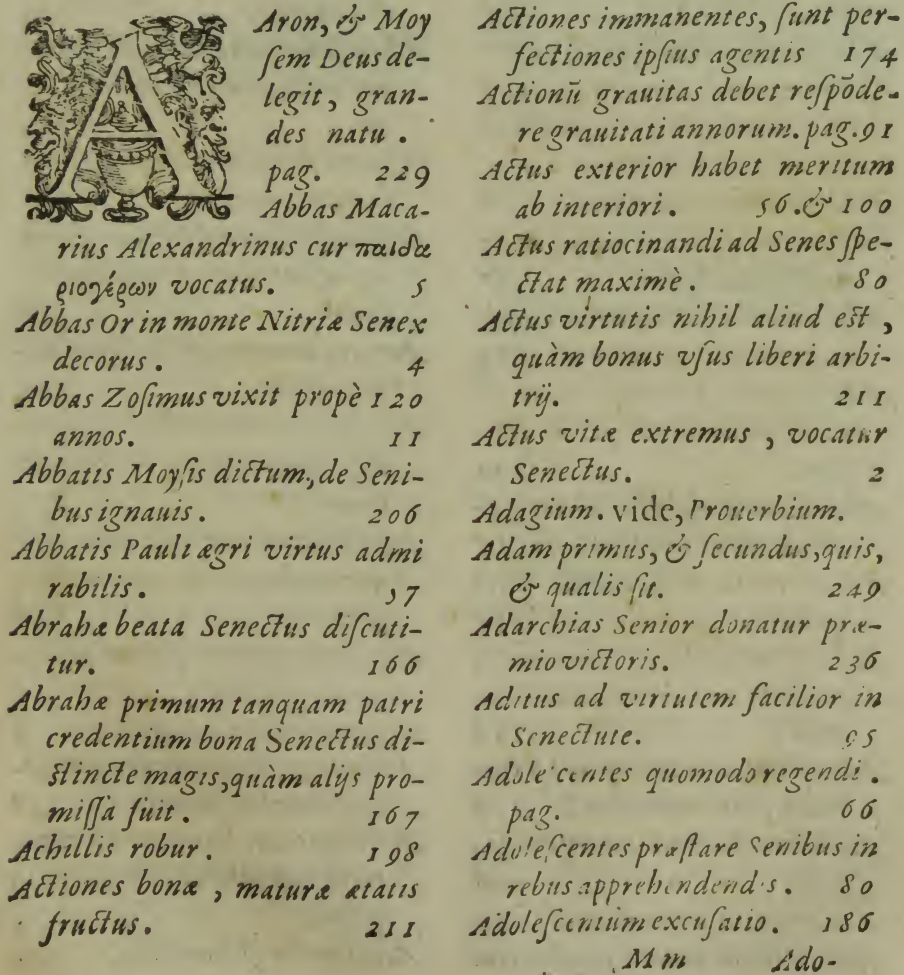 Aron, & Moy
ſem Deus de-
legit, gran-
des natu.
pag. 229
Abbas Maca-
rius Alexandrinus cur παιδα
ριογέρων vocatus. 5
Abbas Or in monte Nitriæ Senex
decorus. 4
Abbas Zoſimus vixit propè 120
annos. 11
Abbatis Moyſis dictum, de Seni-
bus ignauis. 206
Abbatis Pauli ægri virtus admi
rabilis. 57
Abrahæ beata Senectus diſcuti-
tur. 166
Abrahæ primum tanquam patri
credentium bona Senectus di-
ſtincte magis, quàm alijs pro-
miſſa fuit. 167
Achillis robur. 198
Actiones bonæ, maturæ ætatis
fructus. 211
Actiones immanentes, ſunt per-
fectiones ipſius agentis 174
Actionū grauitas debet reſpōde-
re grauitati annorum. pag. 91
Actus exterior habet meritum
ab interiori. 56. & 100
Actus ratiocinandi ad Senes ſpe-
ctat maximè. 80
Actus virtutis nihil aliud eſt,
quàm bonus vſus liberi arbi-
trij. 211
Actus vitæ extremus, vocatur
Senectus. 2
Adagium. vide, Prouerbium.
Adam primus, & ſecundus, quis,
& qualis ſit. 249
Adarchias Senior donatur præ-
mio victoris. 236
Aditus ad virtutem facilior in
Senectute. 95
Adoleſcentes quomodo regendi.
pag. 66
Adoleſcentes præſtare Senibus in
rebus apprehendendis. 80
Adoleſcentium excuſatio. 186
M m Ado-